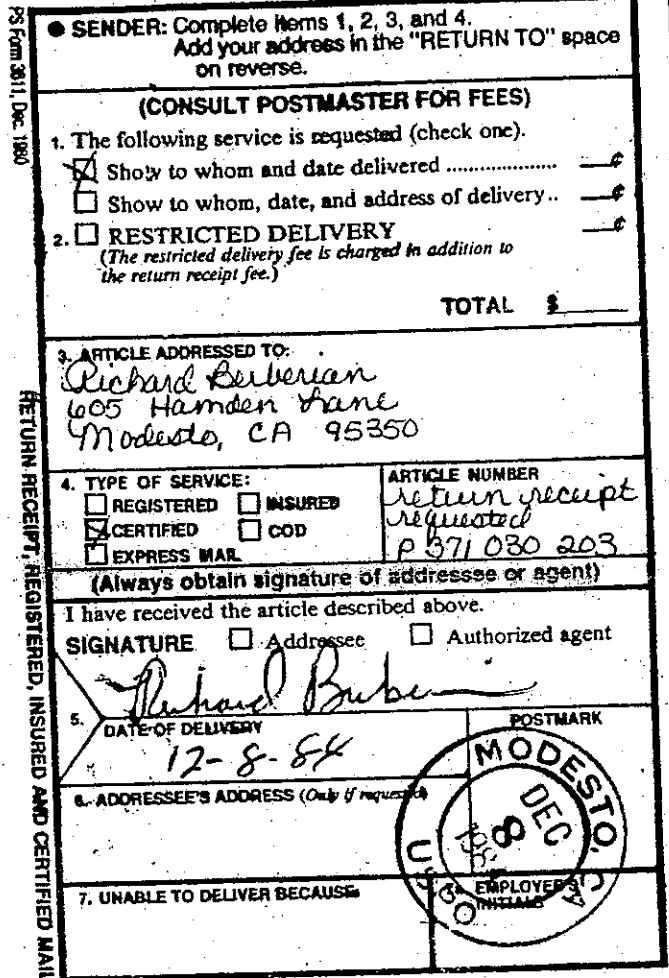 PS Form 3811, Dec. 1980
RETURN RECEIPT, REGISTERED, INSURED AND CERTIFIED MAIL
● SENDER: Complete items 1, 2, 3, and 4.
Add your address in the "RETURN TO" space
on reverse.
(CONSULT POSTMASTER FOR FEES)
1. The following service is requested (check one).
☒ Show to whom and date delivered .................... __¢
☐ Show to whom, date, and address of delivery.. __¢
2. ☐ RESTRICTED DELIVERY __¢
(The restricted delivery fee is charged in addition to
the return receipt fee.)
TOTAL $____
3. ARTICLE ADDRESSED TO:
Richard Berberian
605 Hamden Lane
Modesto, CA 95350
4. TYPE OF SERVICE:
☐ REGISTERED ☐ INSURED
☒ CERTIFIED ☐ COD
☐ EXPRESS MAIL
ARTICLE NUMBER
return receipt
requested
P 371 030 203
(Always obtain signature of addressee or agent)
I have received the article described above.
SIGNATURE ☐ Addressee ☐ Authorized agent
Richard
5. DATE OF DELIVERY
12-8-84
POSTMARK
MODESTO, CA
DEC
8
USPO
6. ADDRESSEE'S ADDRESS (Only if requested)
7. UNABLE TO DELIVER BECAUSE:
EMPLOYEE'S
INITIALS